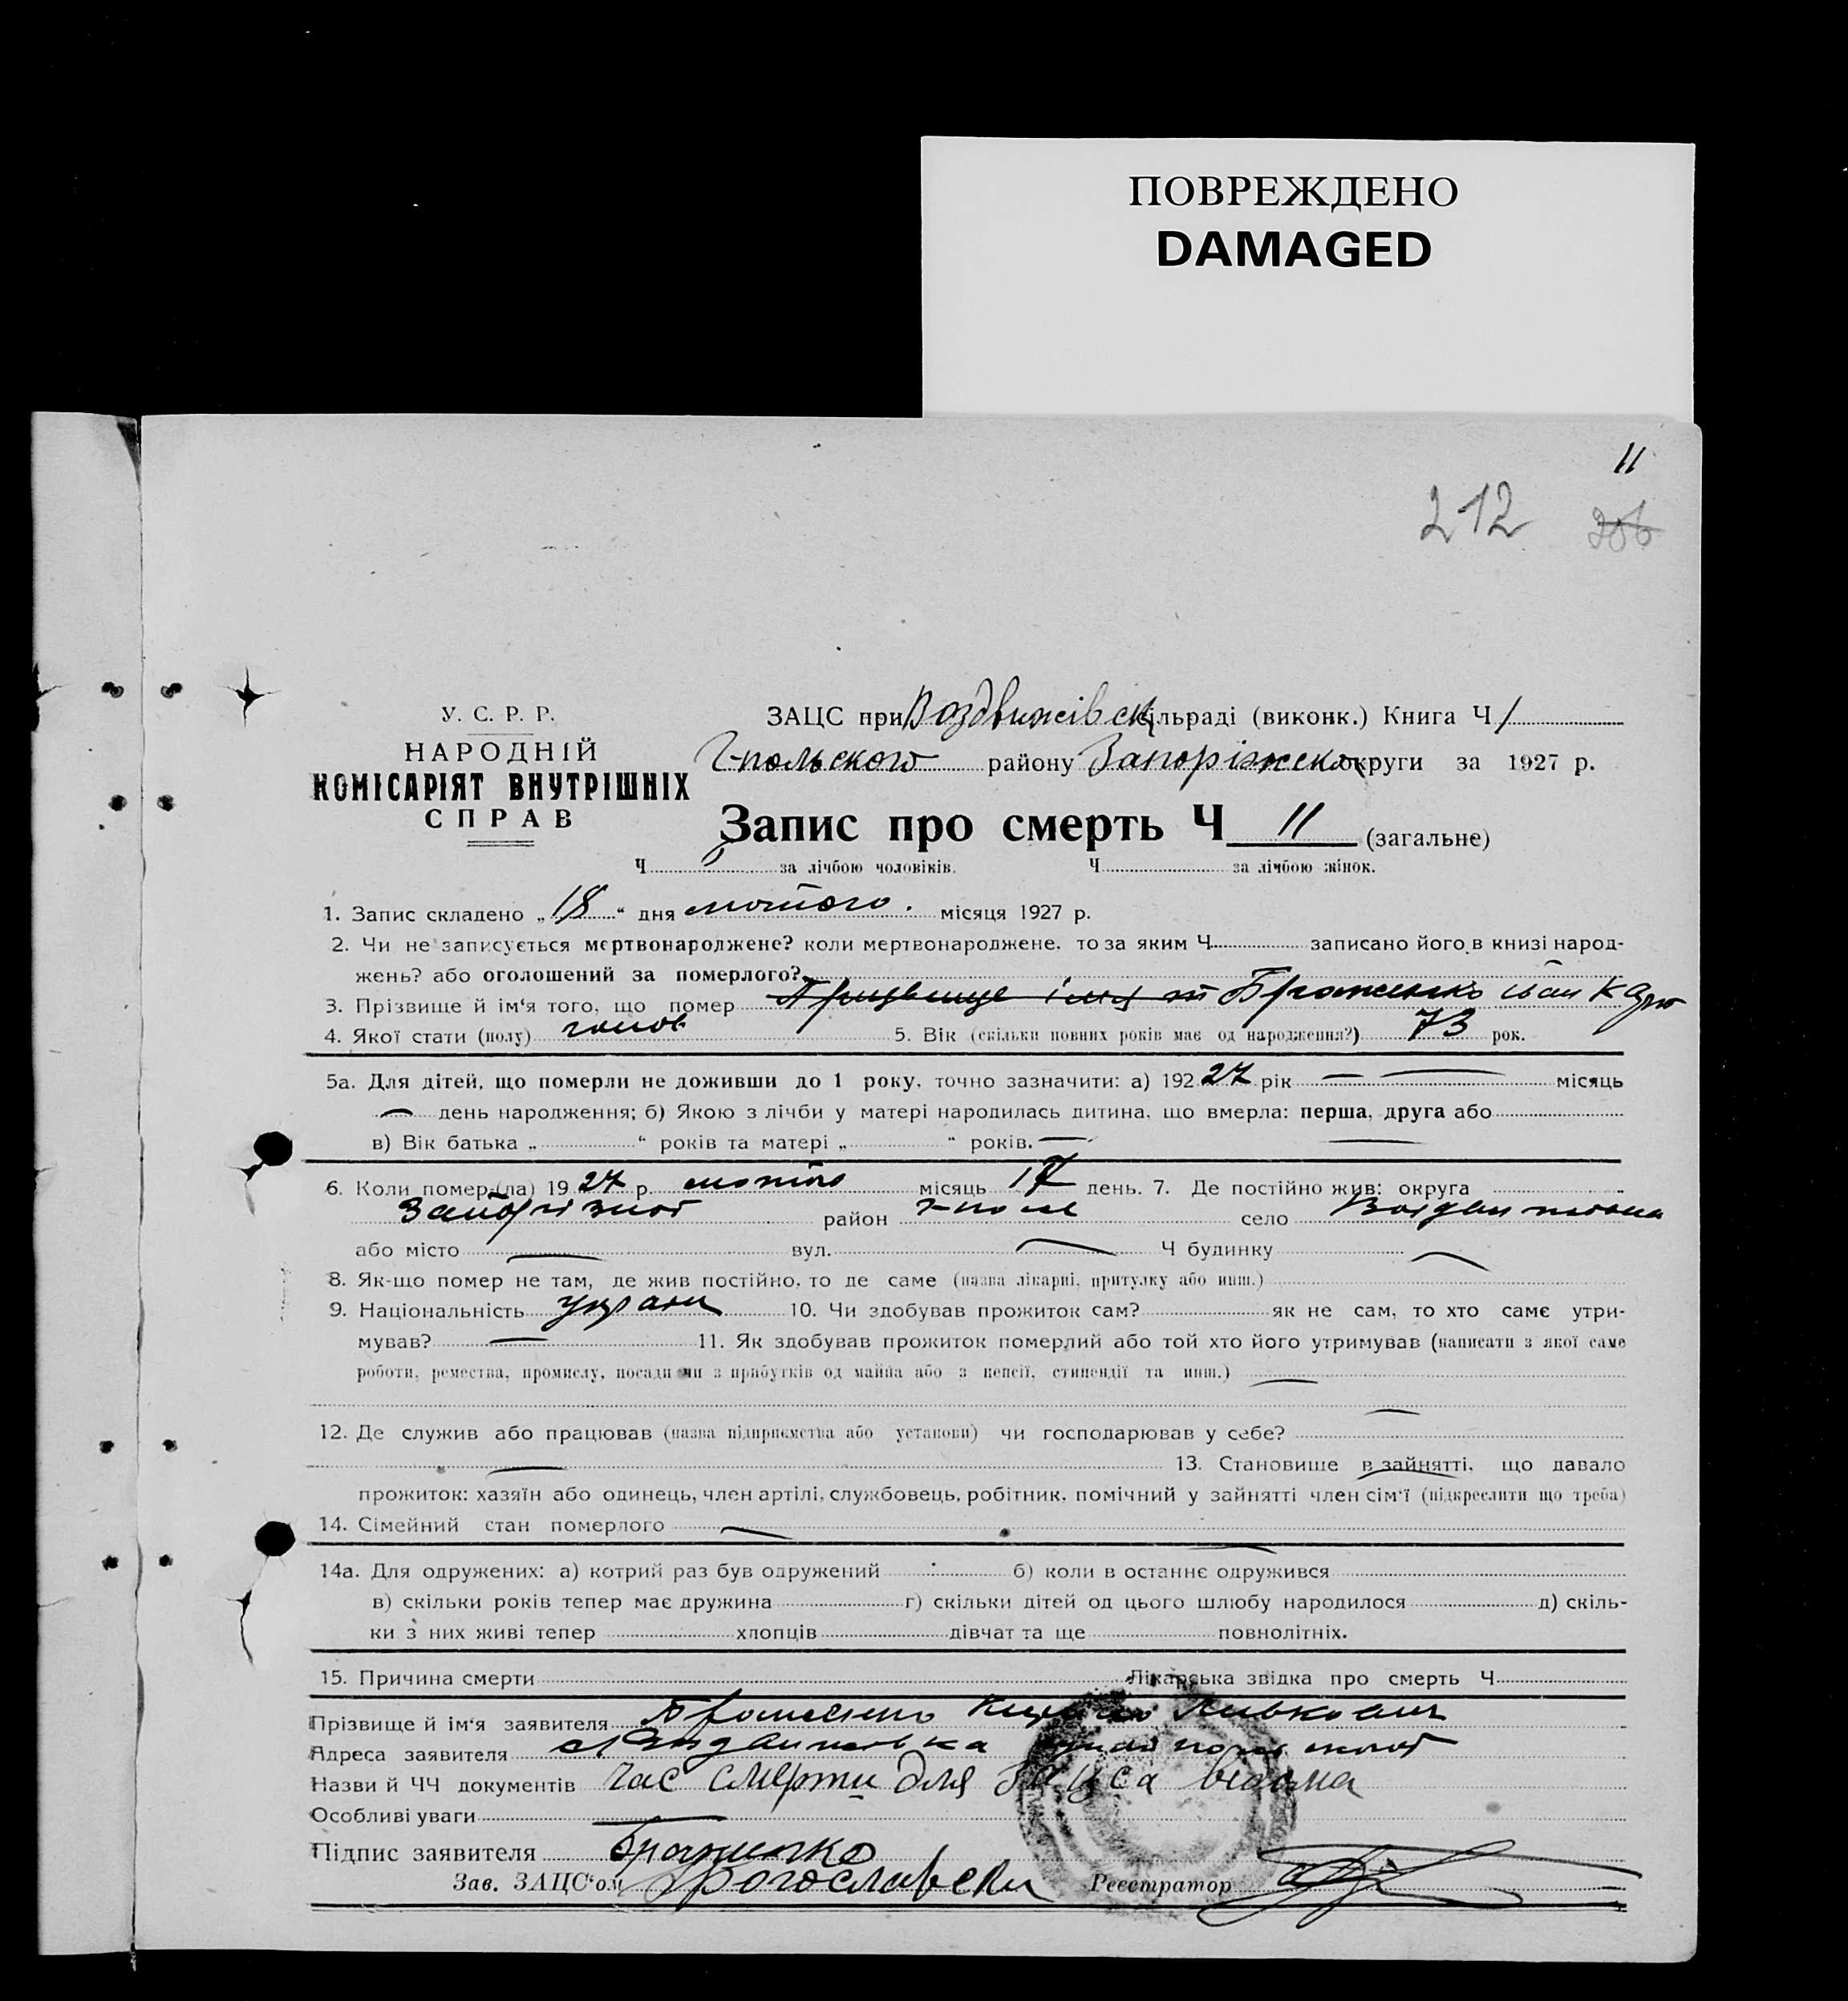 ПОВРЕЖДЕНО
DAMAGED
11
212
206
У. С. Р. Р.
НАРОДНІЙ
КОМІСАРІЯТ ВНУТРІШНІХ
СПРАВ
ЗАЦС при Воздвижівск сільраді (виконк.) Книга Ч 1
Г-польского району Запоріжско округи за 1927 р.
Запис про смерть Ч 11 (загальне)
Ч за лічбою чоловіків. Ч за лічбою жінок.
1. Запис складено „18“ дня лютого місяця 1927 р.
2. Чи не записується мертвонароджене? коли мертвонароджене, то за яким Ч записано його в книзі народ-
жень? або оголошений за померлого?
3. Прізвище й ім‘я того, що помер Іван
4. Якої стати (полу) 5. Вік (скільки повних років має од народження?) 73 рок.
5а. Для дітей, що померли не доживши до 1 року, точно зазначити: а) 192 27 рік — — місяць
— день народження; б) Якою з лічби у матері народилась дитина, що вмерла: перша, друга або
в) Вік батька „ “ років та матері „ “ років. — —
6. Коли помер (ла) 19 27 р. лютого місяць 17 день. 7. Де постійно жив: округа
район село
або місто — вул. — Ч будинку —
8. Як-що помер не там, де жив постійно, то де саме (назва лікарні, притулку або инш.)
9. Національність україн 10. Чи здобував прожиток сам? як не сам, то хто саме утри-
мував? — 11. Як здобував прожиток померлий або той хто його утримував (написати з якої саме
роботи, ремества, промислу, посади чи з прибутків од майна або з пенсії, стипендії та инш.) —
—
12. Де служив або працював (назва підприємства або установи) чи господарював у себе?
— 13. Становище в зайнятті, що давало
прожиток: хазяїн або одинець, член артілі, службовець, робітник, помічний у зайнятті член сім‘ї (підкреслити що треба)
14. Сімейний стан померлого —
14а. Для одружених: а) котрий раз був одружений б) коли в останнє одружився
в) скільки років тепер має дружина г) скільки дітей од цього шлюбу народилося д) скіль-
ки з них живі тепер хлопців дівчат та ще повнолітніх.
15. Причина смерти Лікарська звідка про смерть Ч
Прізвище й ім‘я заявителя
Адреса заявителя
Назви й ЧЧ документів час смерти для
Особливі уваги —
Підпис заявителя
Зав. ЗАЦС‘ом Реєстратор